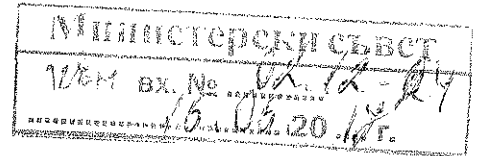 Министерски съвет
към вх. № 02.12-24
15.05.20 г.